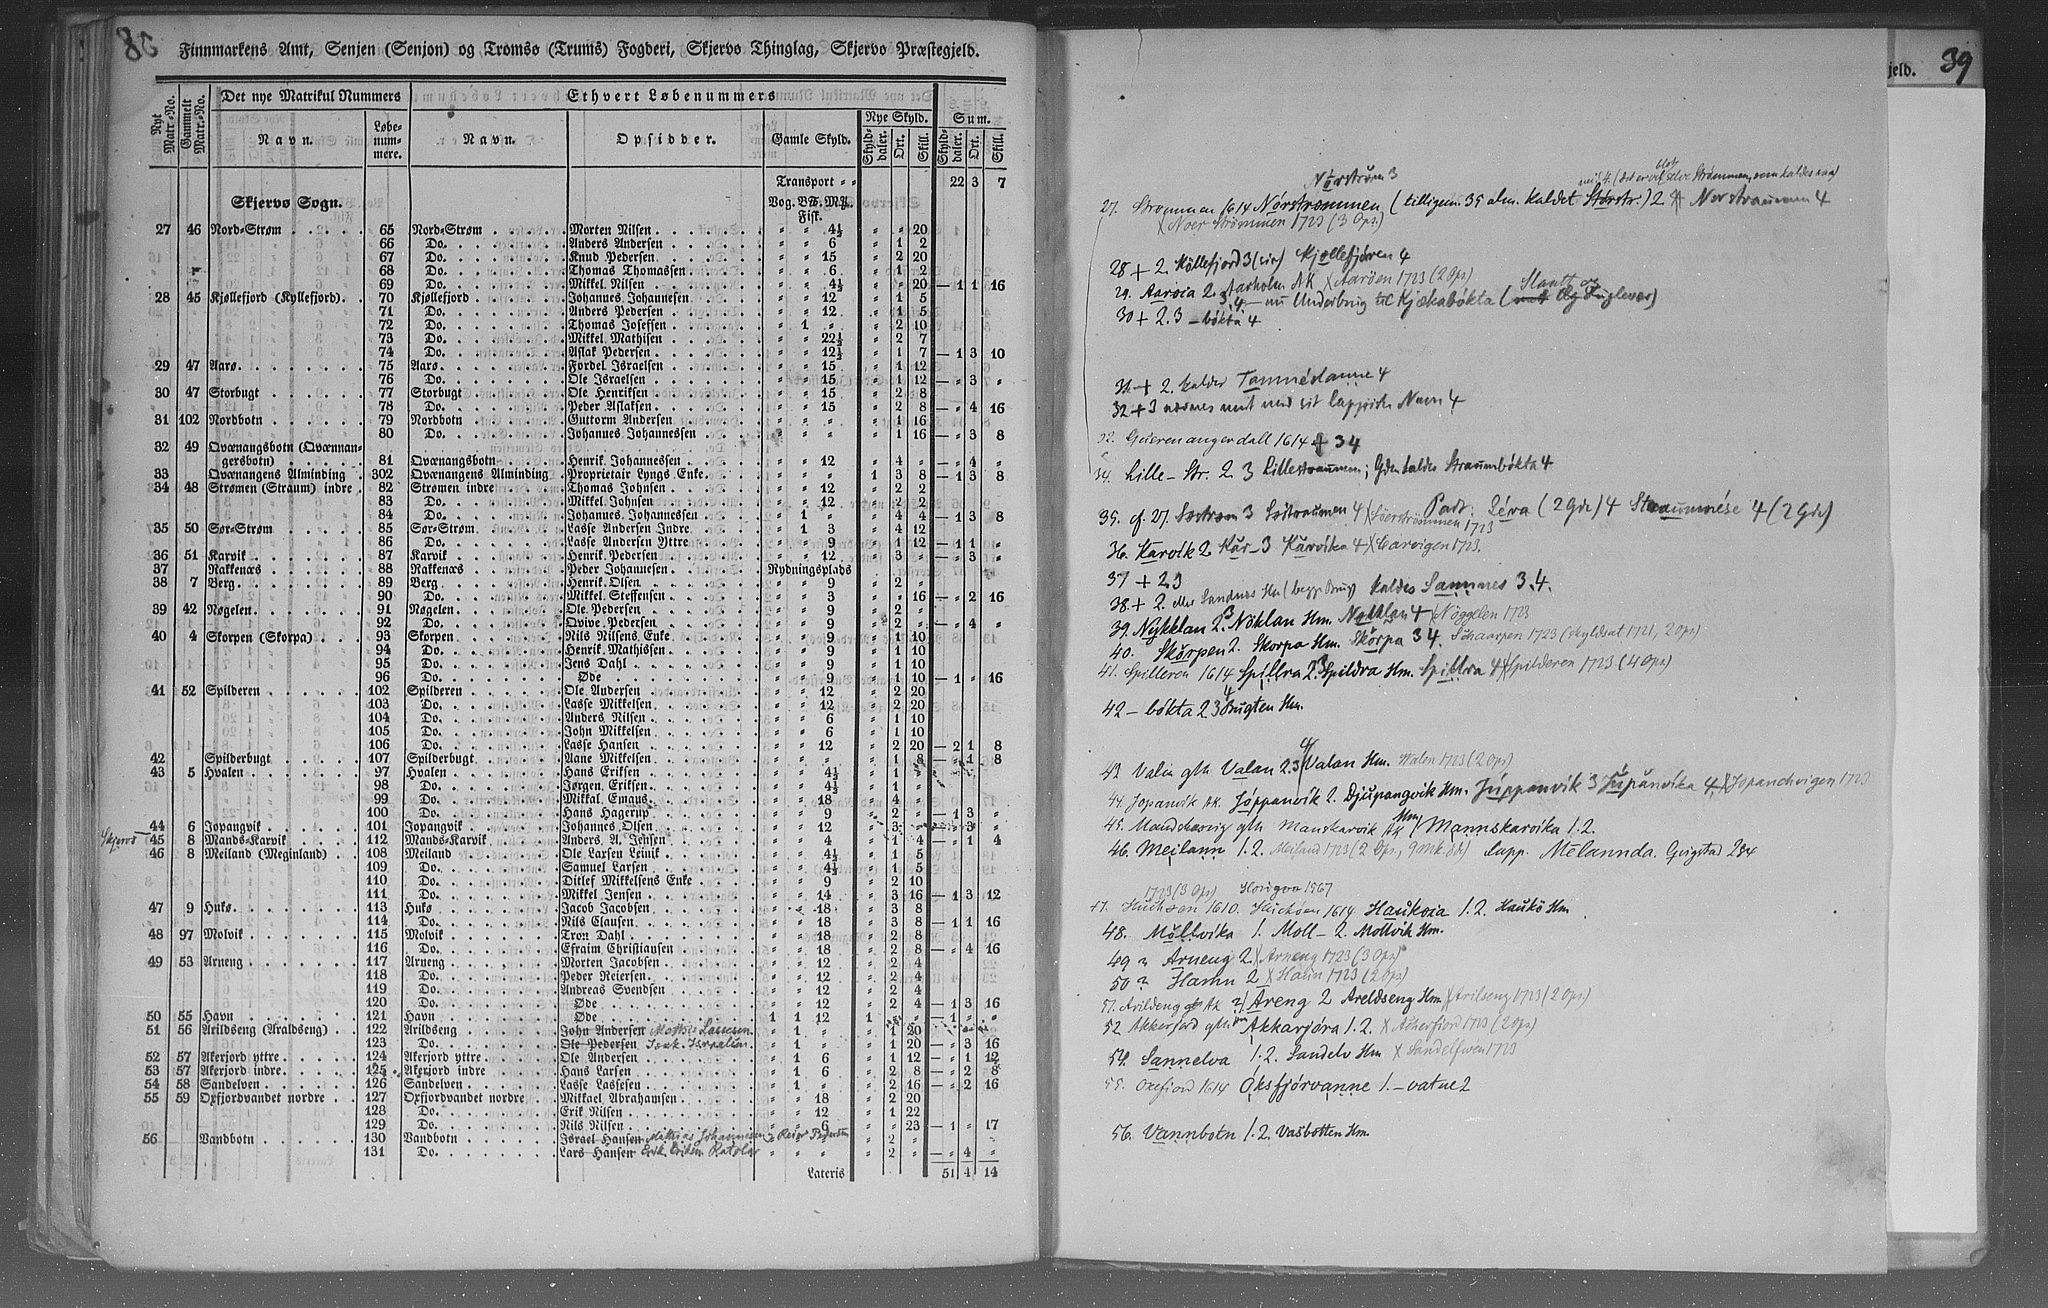 38
Finnmarkens Amt, Senjen (Senjon) og Tromsø (Trums) Fogderi, Skjervø Thinglag, Skjervø Præstegjeld.
Nyt Matr.-No. Gammelt Matr.-No. Det nye Matrikul Nummers Ethvert Løbenummers
Navn. Løbenummere. Navn. Opsidder. Gamle Skyld. Nye Skyld. Sum.
Skylddaler. Ort. Skill. Skylddaler. Ort. Skill.
Transport 22 3 7
Skjervø Sogn. Vog. B℔. M℔. Fisk.
27 46 Nord-Strøm 65 Nord-Strøm Morten Nilsen " " 4½ " " 20
66 Do. Anders Andersen " " 6 " 1 2
67 Do. Knud Pedersen " " 15 " 2 20
68 Do. Thomas Thomassen " " 6 " 1 2
69 Do. Mikkel Nilsen " " 4½ " " 20 — 1 1 16
28 45 Kjøllefjord (Kyllefjord) 70 Kjøllefjord Johannes Johannesen " " 12 " 1 5
71 Do. Anders Pedersen " " 12 " 1 5
72 Do. Thomas Josefsen " 1 " " 2 10
73 Do. Mikkel Mathisen " " 22½ " 2 7
74 Do. Aslak Pedersen " " 12½ " 1 7 — 1 3 10
29 47 Aarø 75 Aarø Fordel Israelsen " " 15 " 1 12
76 Do. Ole Israelsen " " 15 " 1 12 — " 3 "
30 47 Storbugt 77 Storbugt Ole Henriksen " " 15 " 2 8
78 Do. Peder Aslaksen " " 15 " 2 8 — " 4 16
31 102 Nordbotn 79 Nordbotn Guttorm Andersen " " " " 1 16
80 Do. Johannes Johannessen " " " " 1 16 — " 3 8
32 49 Qvænangsbotn (Qvænnangersbotn) 81 Qvænangsbotn Henrik Johannessen " " 12 " 4 " — " 4 "
33 Qvænangens Alminding 302 Qvænangens Alminding Proprietair Lyngs Enke " " " 1 3 8 — 1 3 8
34 48 Strømen (Straum) indre 82 Strømen indre Thomas Johnsen " " 12 " 2 2
83 Do. Mikkel Johnsen " " 12 " 2 2
84 Do. Johannes Johannessen " 1 " " 4 4 — 1 3 8
35 50 Sør-Strøm 85 Sør-Strøm Lasse Andersen Indre " 1 3 " 4 12
86 Do. Lasse Andersen Yttre " " 9 " 1 12 — 1 1 "
36 51 Karvik 87 Karvik Henrik Pedersen " " 12 " 3 " — " 3 "
37 Rakkenæs 88 Rakkenæs Peder Johannesen Rydningsplads
38 7 Berg 89 Berg Henrik Olsen " " 9 " 2 "
90 Do. Mikkel Steffensen " " 3 " " 16 — " 2 16
39 42 Nøgelen 91 Nøgelen Ole Pedersen " " 9 " 2 "
92 Do. Qvive Pedersen " " 9 " 2 " — " 4 "
40 4 Skorpen (Skorpa) 93 Skorpen Nils Nilsens Enke " " 9 " 1 10
94 Do. Henrik Mathissen " " 9 " 1 10
95 Do. Jens Dahl " " 9 " 1 10
96 Do. Øde " " 9 " 1 10 — 1 " 16
41 52 Spilderen 102 Spilderen Ole Andersen " " 12 " 2 20
103 Do. Lasse Mikkelsen " " 12 " 2 20
104 Do. Anders Nilsen " " 6 " 1 10
105 Do. John Mikkelsen " " 6 " 1 10
106 Do. Lasse Hansen " " 12 " 2 20 — 2 1 8
42 Spilderbugt 107 Spilderbugt Aane Mikkelsen " " " " 1 8 — " 1 8
43 5 Hvalen 97 Hvalen Hans Eriksen " " 4½ " 1 "
98 Do. Jørgen Eriksen " " 4½ " 1 "
99 Do. Mikkal Emaus " " 18 " 4 "
100 Do. Hans Hagerup " " 9 " 2 " — 1 3 "
44 6 Jopangvik 101 Jopangvik Johannes Olsen " " 12 " 3 " — " 3 "
Skjervö 45 8 Mands-Karvik 112 Mands-Karvik Anders A. Jensen " " 4 " 1 4 — " 1 4
46 8 Meiland (Meginland) 108 Meiland Ole Larsen Leivik " " 4½ " 1 5
109 Do. Samuel Larsen " " 4½ " 1 5
110 Do. Ditlef Mikkelsens Enke " " 9 " 2 10
111 Do. Mikkel Jensen " " 14 " 3 16 — 1 3 12
47 9 Hukø 113 Hukø Jacob Jacobsen " " 18 " 3 8
114 Do. Nils Clausen " " 18 " 3 8 — 1 1 16
48 97 Molvik 115 Molvik Tron Dahl " " 18 " 2 8
116 Do. Efraim Christiansen " " 18 " 2 8 — " 4 16
49 53 Arneng 117 Arneng Morten Jacobsen " " 12 " 2 4
118 Do. Peder Reiersen " " 12 " 2 4
119 Do. Andreas Svendsen " " 12 " 2 4
120 Do. Øde " " 12 " 2 4 — 1 3 16
50 55 Havn 121 Havn Øde 1 1 12 1 " " — 1 " "
51 56 Arildseng (Araldseng) 122 Arildseng John Andersen " 1 " " 1 20
123 Do. Ole Pedersen Isak Israelsen " 1 " " 1 20 — " 3 16
52 57 Akerjord yttre 124 Akerjord yttre Ole Andersen " 1 6 " 1 12 — " 1 12
53 57 Akerjord indre 125 Akerjord indre Hans Larsen " 1 6 " 2 8 — " 2 8
54 58 Sandelven 126 Sandelven Lasse Lassesen " 1 " " 2 16 — " 2 16
55 59 Oxfjordvandet nordre 127 Oxfjordvandet nordre Mikkael Abrahamsen " " 18 " 2 20
128 Do. Erik Nilsen " " 12 " 1 22
129 Do. Nils Nilsen " " 6 " " 23 — 1 " 17
56 Vandbotn 130 Vandbotn Israel Hansen Mathias Johannesen " " " " 2 "
131 Do. Lars Hansen Erik Eriksen " " " " 2 " — " 4 "
Lateris 51 4 14
jeld. 39
Nörstrüm 3
27. Strömmen 1614 Nórstrommen (tilligem. 35 alm. kaldet Störstr.) 2 Norstraumen 4
X Noer Strömmen 1723 (3 Ops)
28 + 2. Köllefjord 3 Kjollefjóren 4
29. Aaroia 2. Aarholm AK X Aarøen 1723 (2 Ops)
4 – nu Underbrug til Kjækabókta
30 + 2.3 – bókta 4
31 + 2. kaldes Tamnéslanne 4
32 + 3 nævnes mest med sit lappiske Navn 4
32. Gueren anger dall 1614 + 34
34. Lille – Str. 2. 3 Lillestraumen; Gden kaldes Straumbókta 4
35. cf. 27. Sostrom 3 Sostraumen 4 X Söerströmmen 1723 Part: Léra (2 Gde) 4 Straumnése 4 (2 Gde)
36. Karvik 2. Kar – 3 Karvika 4 X Carvigen 1723.
37 + 2.3
38 + 2. eller Sandnes Hm (begge Brug) kaldes Sannnes 3.4.
39. Nykklan 2. Nöklan Hm. Nykklan 4 X Nöggelen 1723
40. Skorpen 2. Skorpa Hm. Skorpa 3 4. Schaarpen 1723 (skyldsat 1721, 2 Ops)
41. Spilleren 1614 Spillra 2. Spildra Hm. Spillra 4 X Spilderen 1723 (4 Ops)
42 – bókta 2 3 Bugten Hm.
43. Valen gtl. Valan 2.3 Valan Hm. Walen 1723 (2 Ops)
44. Jopanvik AK. Jóppanvik 2. Djupangvik Hm. Júppanvik 3 Júpanvika 4 X Jopanchvigen 1723
45. Mandskarvig gtl. Manskarvik AK Hm Mannskarvika 1.2.
46. Meilann 1.2. Meiland 1723 (2 Ops, 9 mk öde) Lapp. Mélannda. Qvigstad 284
1723 (3 Ops) Hougoen 1567
47. Huchøen 1610. Huckøen 1614 Haukoia 1.2. Haukö Hm
48. Mollvika 1. Moll – 2. Mollvik Hm.
49 Arneng 2. X Arneng 1723 (3 Ops)
50 Hamn 2 X Haun 1723 (2 Ops)
51. Arildeng AK Areng 2 Areldseng Hm. X Arilseng 1723 (2 Ops)
52. Akkerjord gtl. Akkarjóra 1.2. X Acherfiord 1723 (2 Ops)
54. Sannelva 1.2. Sandelv Hm X Sandelfwen 1723
55. Oxefiord 1614 Óksfjórvanne 1. – vatne 2
56. Vannbotn 1.2. Vasbotten Hm.